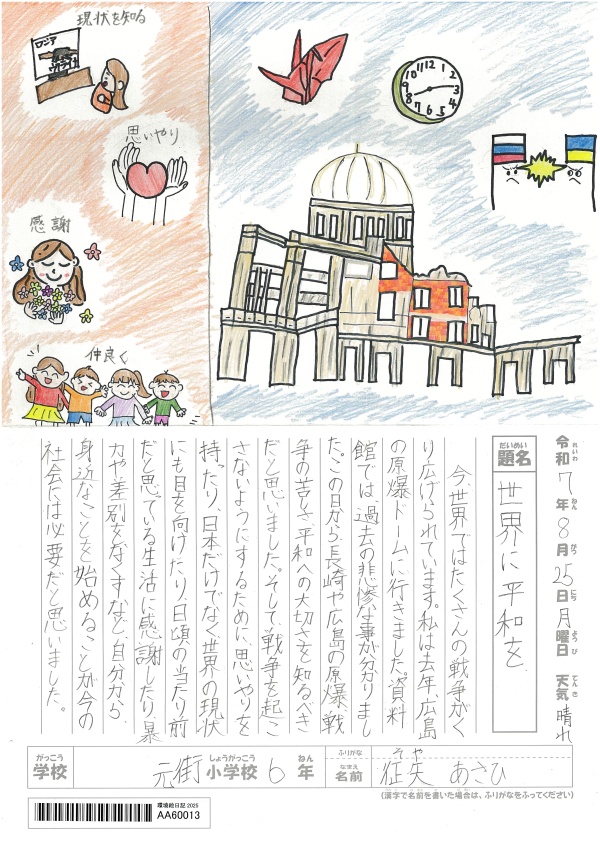 現状を知る
ロジア
思いやり
感謝
仲良く
11 12 1
10 2
9 3
8 4
7 6 5
令和7年8月25日月曜日 天気 晴れ
れいわ ねん がつ にち ようび てんき
だいめい
題名
世界に平和を
今、世界ではたくさんの戦争がく
り広げられています。私は去年、広島
の原爆ドームに行きました。資料
館では、過去の悲惨な事が分かりまし
た。この日から、長崎や広島の原爆、戦
争の苦しさ、平和への大切さを知るべき
だと思いました。そして、戦争を起こ
さないようにするために、思いやりを
持ったり、日本だけでなく世界の現状
にも目を向けたり、日頃の当たり前
だと思っている生活に感謝したり、暴
力や差別をなくすなど、自分から、
身近なことを始めることが今の
社会には必要だと思いました。
がっこう
学校
元街 小学校 6 年
しょうがっこう ねん
ふりがな そや
なまえ
名前
征矢 あさひ
(漢字で名前を書いた場合は、ふりがなをふってください)
環境絵日記 2025
AA60013